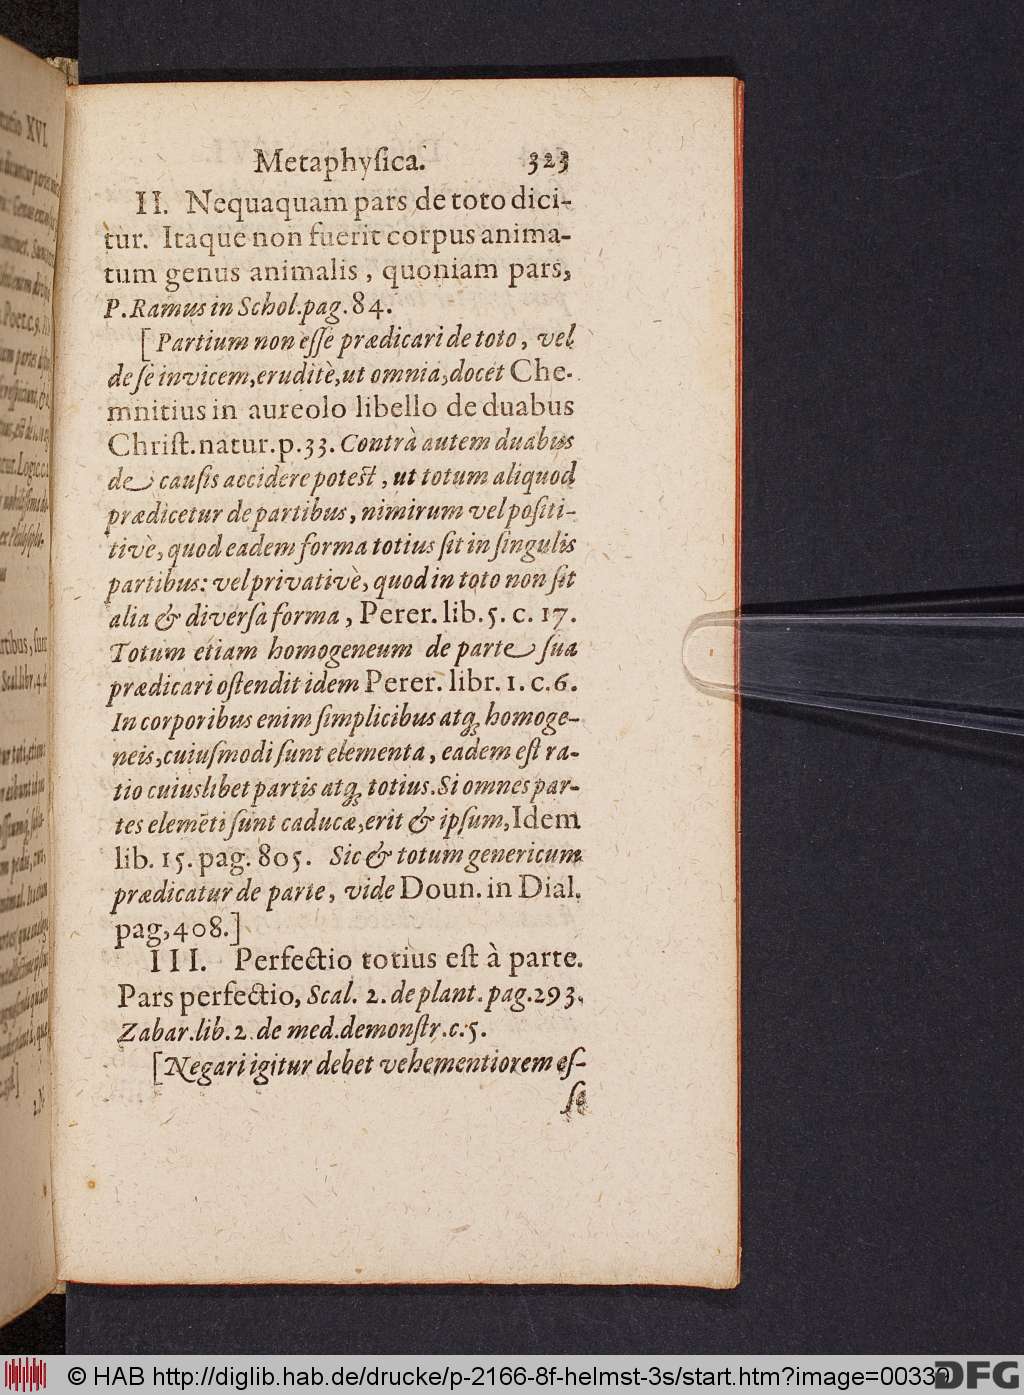 Metaphyſica. 323
II. Nequaquam pars de toto dici-
tur. Itaque non fuerit corpus anima-
tum genus animalis, quoniam pars,
P. Ramus in Schol. pag. 84.
[Partium non eſſe prædicari de toto, vel
de ſe invicem, eruditè, ut omnia, docet Che-
mnitius in aureolo libello de duabus
Chriſt. natur. p. 33. Contrà autem duabus
de cauſis accidere poteſt, ut totum aliquod
prædicetur de partibus, nimirum vel poſiti-
tivè, quod eadem forma totius ſit in ſingulis
partibus: vel privativè, quod in toto non ſit
alia & diverſa forma, Perer. lib. 5. c. 17.
Totum etiam homogeneum de parte ſua
prædicari oſtendit idem Perer. libr. 1. c. 6.
In corporibus enim ſimplicibus atq; homoge-
neis, cuiuſmodi ſunt elementa, eadem eſt ra-
tio cuiuslibet partis atq; totius. Si omnes par-
tes elemēti ſunt caducæ, erit & ipſum, Idem
lib. 15. pag. 805. Sic & totum genericum
prædicatur de parte, vide Doun. in Dial.
pag, 408.]
III. Perfectio totius eſt à parte.
Pars perfectio, Scal. 2. de plant. pag. 293.
Zabar. lib. 2. de med. demonſtr. c. 5.
[Negari igitur debet vehementiorem eſ-
ſe
© HAB http://diglib.hab.de/drucke/p-2166-8f-helmst-3s/start.htm?image=00339
DFG